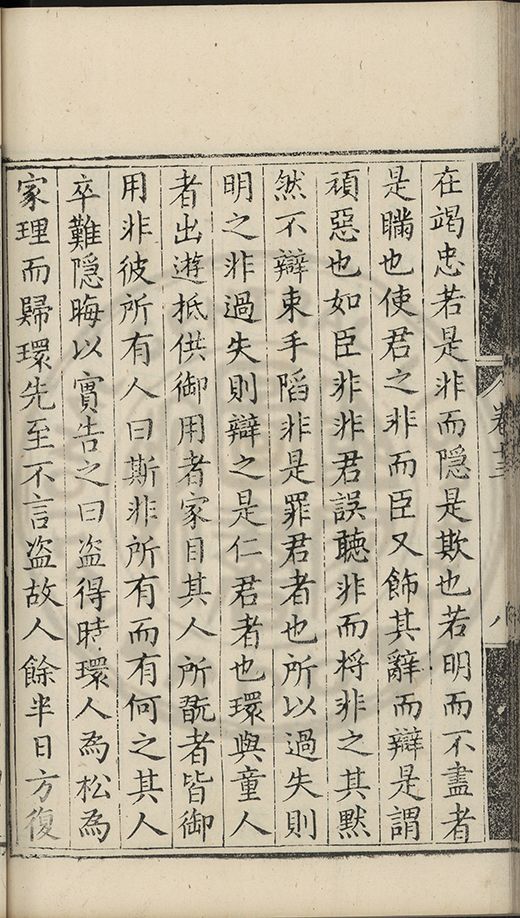 在竭忠若是非而隱是欺也若明而不盡者
是瞞也使君之非而臣又飾其辭而辯是謂
頑惡也如臣非非君誤聽非而將非之其默
然不辯束手陷非是罪君者也所以過失則
明之非過失則辯之是仁君者也環與童人
者出遊抵供御用者家目其人所翫者皆御
用非彼所有人曰斯非所有而有何之其人
卒難隱晦以實告之曰盗得時環人為松為
家理而歸環先至不言盗故人餘半日方復
卷十三
八